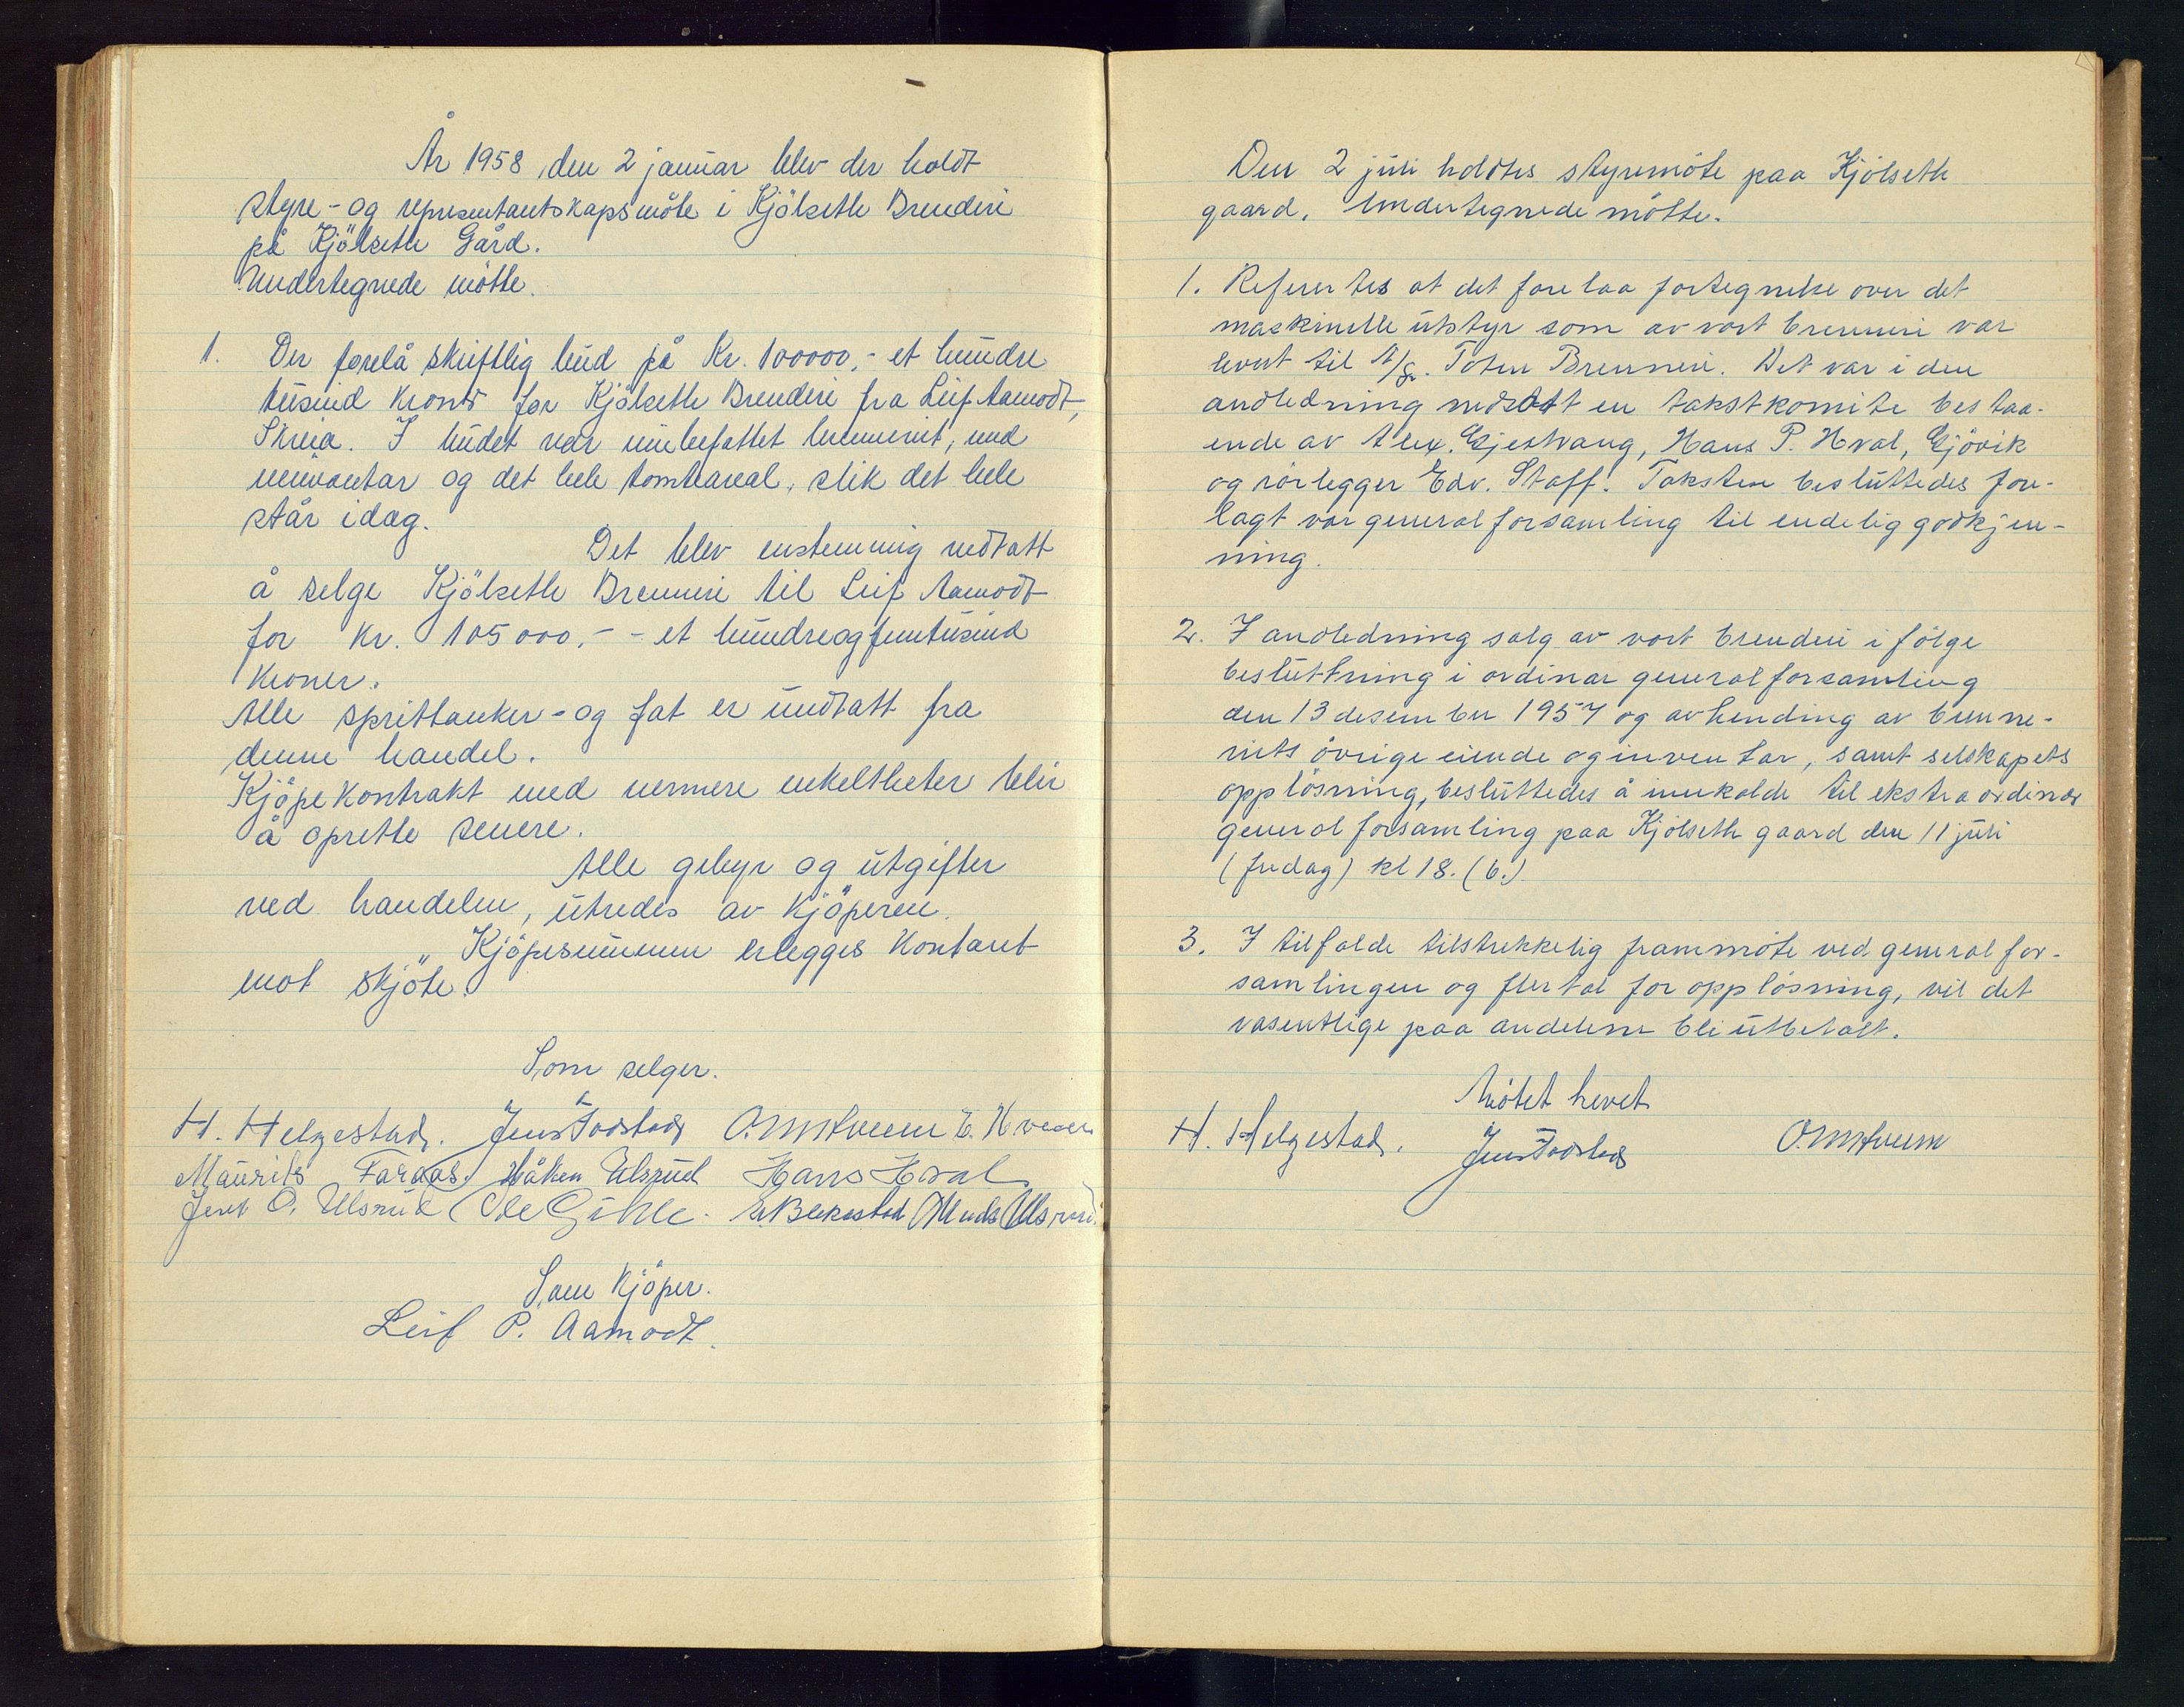 År 1958, den 2 januar blev der holdt
styre- og representantskapsmöte i Kjölseth Brenderi
på Kjölseth Gård.
Undertegnede mötte.
1. Der forelå skriftlig bud på Kr. 100000,- et hundre
tusind kroner for Kjölseth Brenderi fra Leif Aamodt,
Skreia. I budet var innbefattet brenneriet, med
inventar og det hele tomtareal, slik det hele
står idag.
Det blev enstemmig vedtatt
å selge Kjölseth Brenneri til Leif Aamodt
for Kr. 105 000,- - et hundreogfemtusind
Kroner.
Alle sprittanker- og fat er undtatt fra
denne handel.
Kjöpekontrakt med nermere enkeltheter blir
å oprette senere.
Alle gebyr og utgifter
ved handelen, utredes av kjöperen.
Kjöpesummen erlegges kontant
mot skjöte.
Som selger.
H. Helgestad. Jens Fodstad
Maurits Faraas. Håken Ulsrud Hans Hval
Jens O. Ulsrud Ole Gihle. Ulsrud.
Som Kjöper.
Leif P. Aamodt.
Den 2 juli holdtes styremöte paa Kjölseth
gaard. Undertegnede mötte.
1. Referertes at det forelaa fortegnelse over det
maskinelle utstyr som av vort brenneri var
levert til A/S. Toten Brenneri. Det var i den
andledning nedsatt en takstkomite bestaa-
ende av Alex. Gjestvang, Hans P. Hval, Gjövik
og rörlegger Edv. Staff. Taksten besluttedes fore-
lagt vor generalforsamling til endelig godkjen-
ning.
2. I andledning salg av vort brenderi i fölge
besluttning i ordinær generalforsamling
den 13 desember 1957 og avhending av brenne-
riets övrige eiende og inventar, samt selskapets
opplösning, besluttedes å innkalde til ekstraordinær
generalforsamling paa Kjölseth gaard den 11 juli
(fredag) kl 18. (6.)
3. I tilfelde tilstrekkelig frammöte ved generalfor-
samlingen og flertal for opplösning, vil det
vasentlige paa andelene bli utbetalt.
Mötet hevet
H. Helgestad. Jens Fodstad